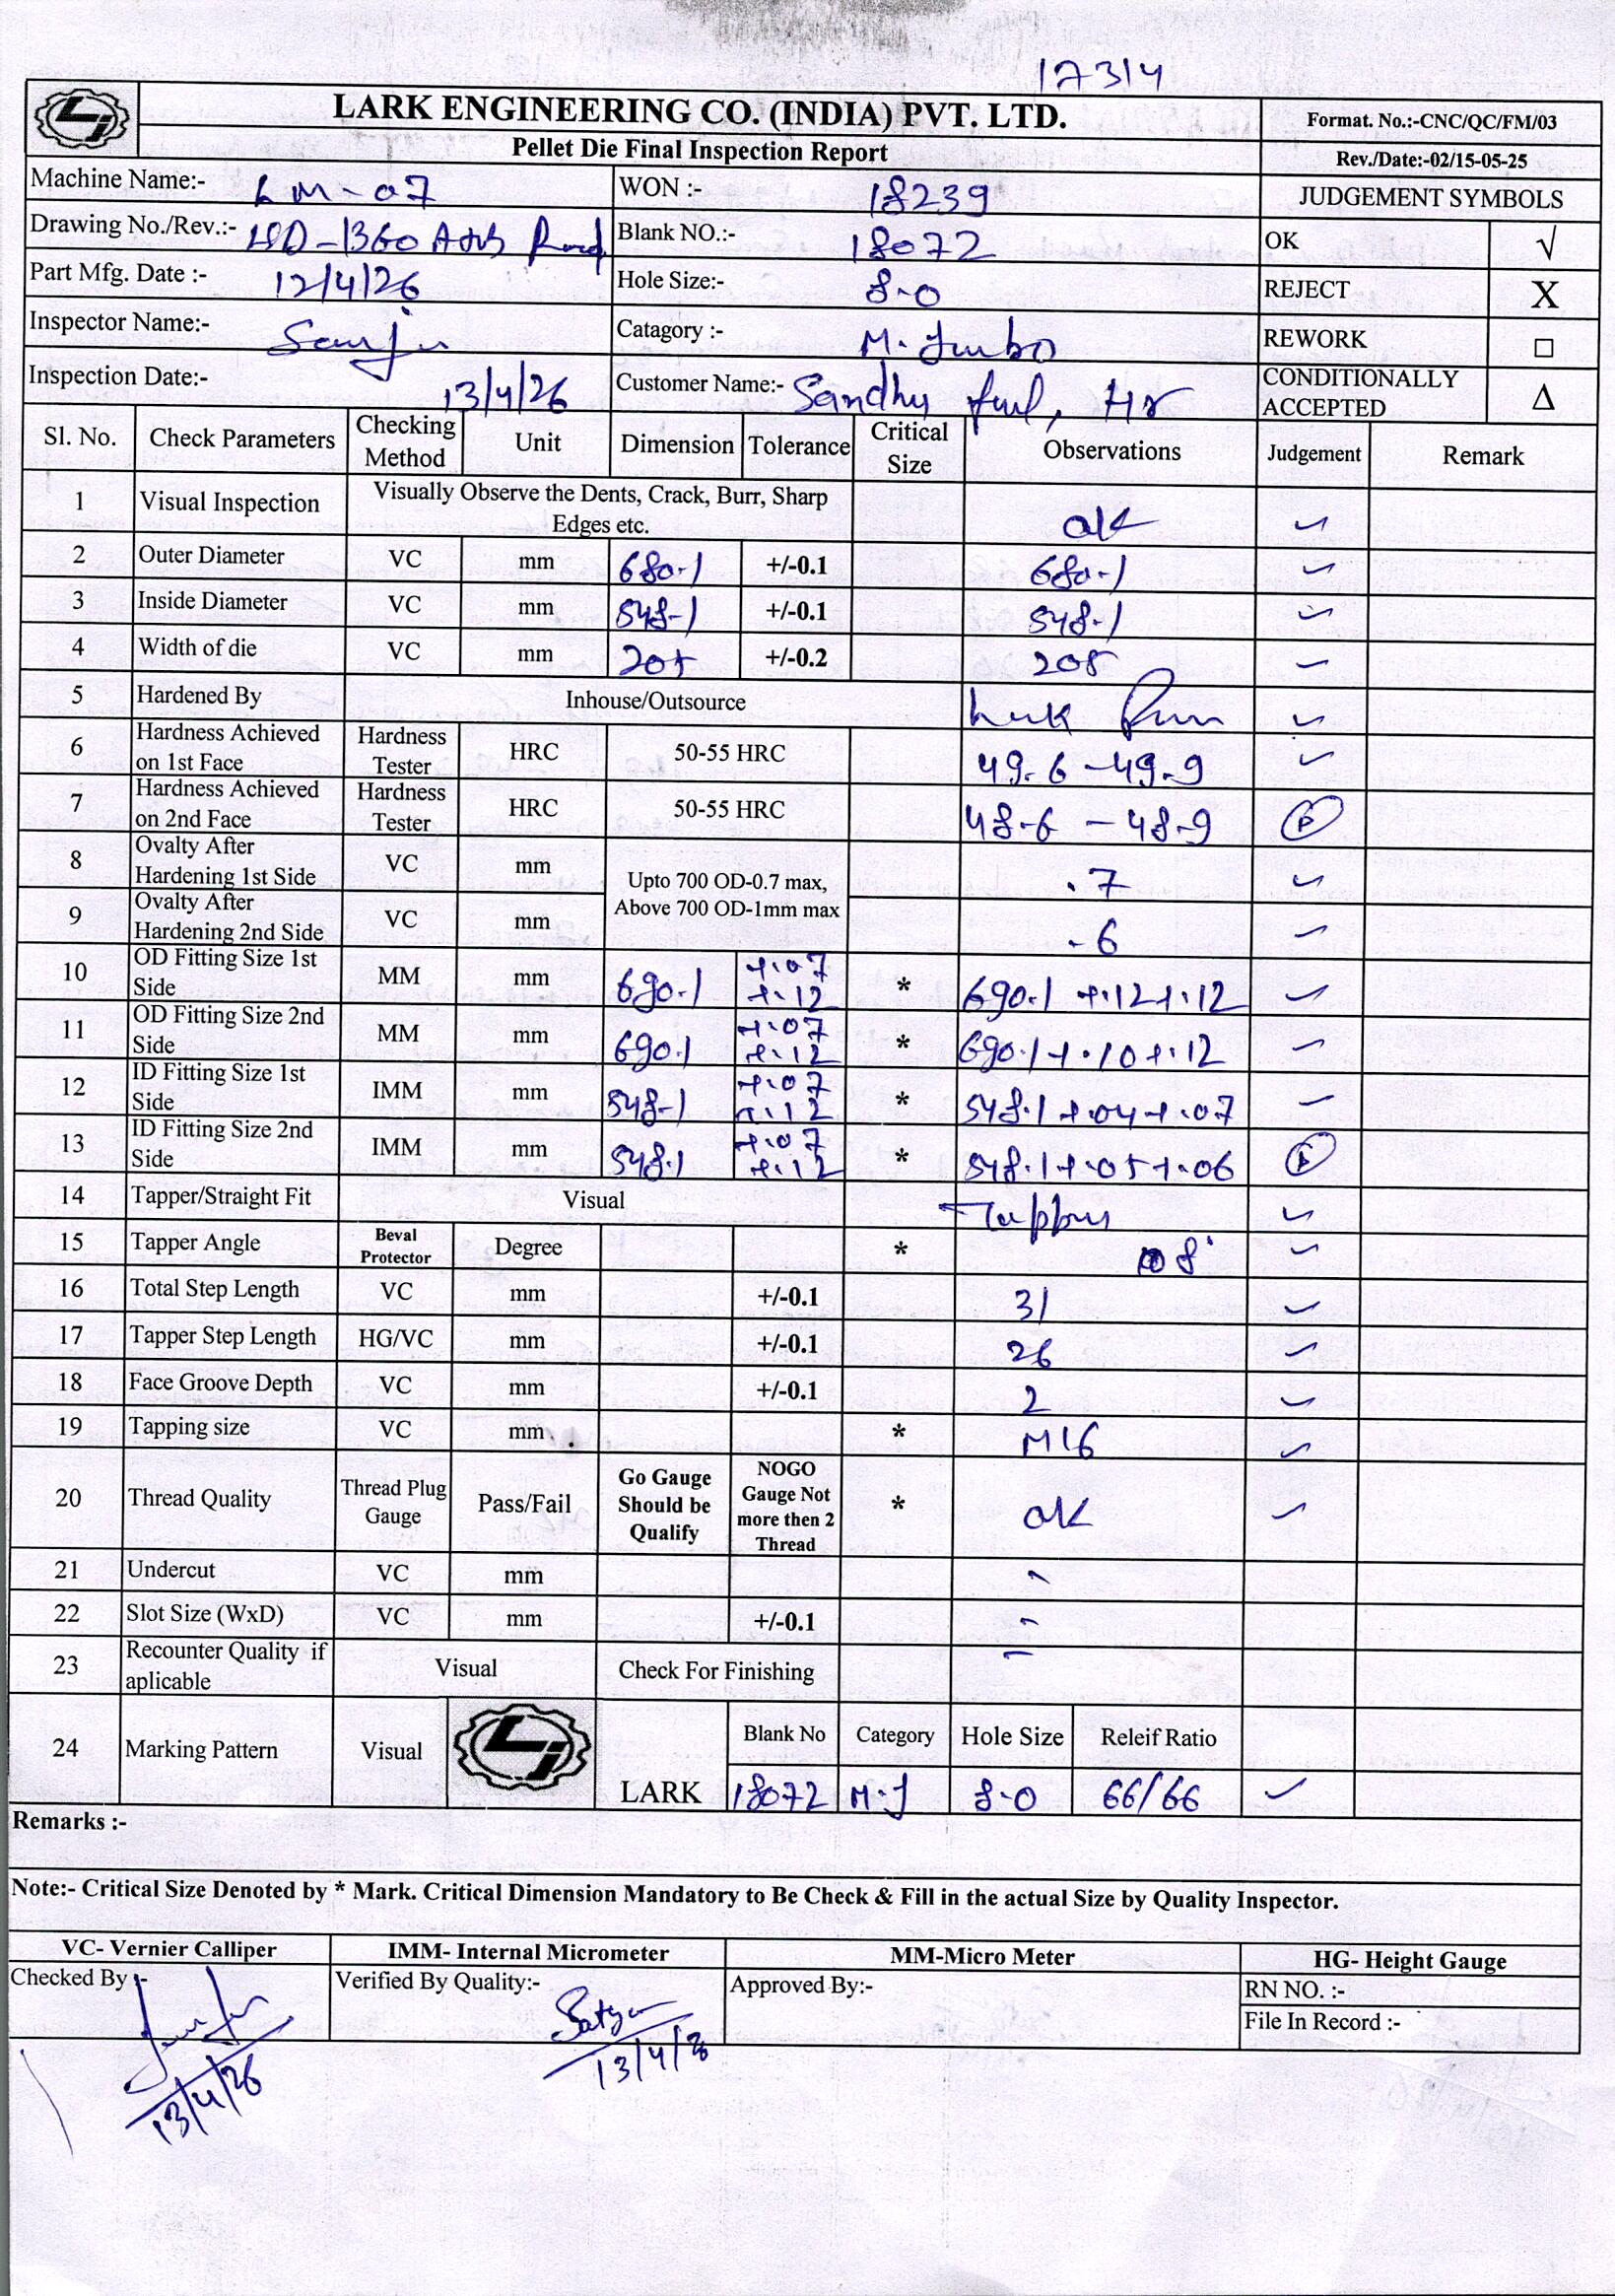 17314
LARK ENGINEERING CO. (INDIA) PVT. LTD.
Format. No.:-CNC/QC/FM/03
Pellet Die Final Inspection Report
Rev./Date:-02/15-05-25
Machine Name:- LM-07 WON :- 18239 JUDGEMENT SYMBOLS
Drawing No./Rev.:- -1360 Blank NO.:- 18072 OK √
Part Mfg. Date :- 12/4/26 Hole Size:- 8.0 REJECT X
Inspector Name:- Sanju Catagory :- M. Jumbo REWORK □
Inspection Date:- 13/4/26 Customer Name:- Sandhu , Hr CONDITIONALLY ACCEPTED Δ
Sl. No. Check Parameters Checking Method Unit Dimension Tolerance Critical Size Observations Judgement Remark
1 Visual Inspection Visually Observe the Dents, Crack, Burr, Sharp Edges etc. ok ✓
2 Outer Diameter VC mm 680.1 +/-0.1 680.1 ✓
3 Inside Diameter VC mm 548.1 +/-0.1 548.1 ✓
4 Width of die VC mm 205 +/-0.2 205 ✓
5 Hardened By Inhouse/Outsource ✓
6 Hardness Achieved on 1st Face Hardness Tester HRC 50-55 HRC 49.6 - 49.9 ✓
7 Hardness Achieved on 2nd Face Hardness Tester HRC 50-55 HRC 48.6 - 48.9
8 Ovalty After Hardening 1st Side VC mm Upto 700 OD-0.7 max, Above 700 OD-1mm max .7 ✓
9 Ovalty After Hardening 2nd Side VC mm .6 ✓
10 OD Fitting Size 1st Side MM mm 690.1 +.07 +.12 * 690.1 +.12+.12 ✓
11 OD Fitting Size 2nd Side MM mm 690.1 +.07 +.12 * 690.1+.10+.12 ✓
12 ID Fitting Size 1st Side IMM mm 548.1 +.07 +.12 * 548.1+.04+.07 ✓
13 ID Fitting Size 2nd Side IMM mm 548.1 +.07 +.12 * 548.1+.05+.06
14 Tapper/Straight Fit Visual Tapper ✓
15 Tapper Angle Beval Protector Degree * 8° ✓
16 Total Step Length VC mm +/-0.1 31 ✓
17 Tapper Step Length HG/VC mm +/-0.1 26 ✓
18 Face Groove Depth VC mm +/-0.1 2 ✓
19 Tapping size VC mm * M16 ✓
20 Thread Quality Thread Plug Gauge Pass/Fail Go Gauge Should be Qualify NOGO Gauge Not more then 2 Thread * ok ✓
21 Undercut VC mm -
22 Slot Size (WxD) VC mm +/-0.1 -
23 Recounter Quality if aplicable Visual Check For Finishing -
24 Marking Pattern Visual LARK Blank No Category Hole Size Releif Ratio
18072 M.J 8.0 66/66 ✓
Remarks :-
Note:- Critical Size Denoted by * Mark. Critical Dimension Mandatory to Be Check & Fill in the actual Size by Quality Inspector.
VC- Vernier Calliper IMM- Internal Micrometer MM-Micro Meter HG- Height Gauge
Checked By :- Verified By Quality:- Satya Approved By:- RN NO. :-
File In Record :-
13/4/26 13/4/26